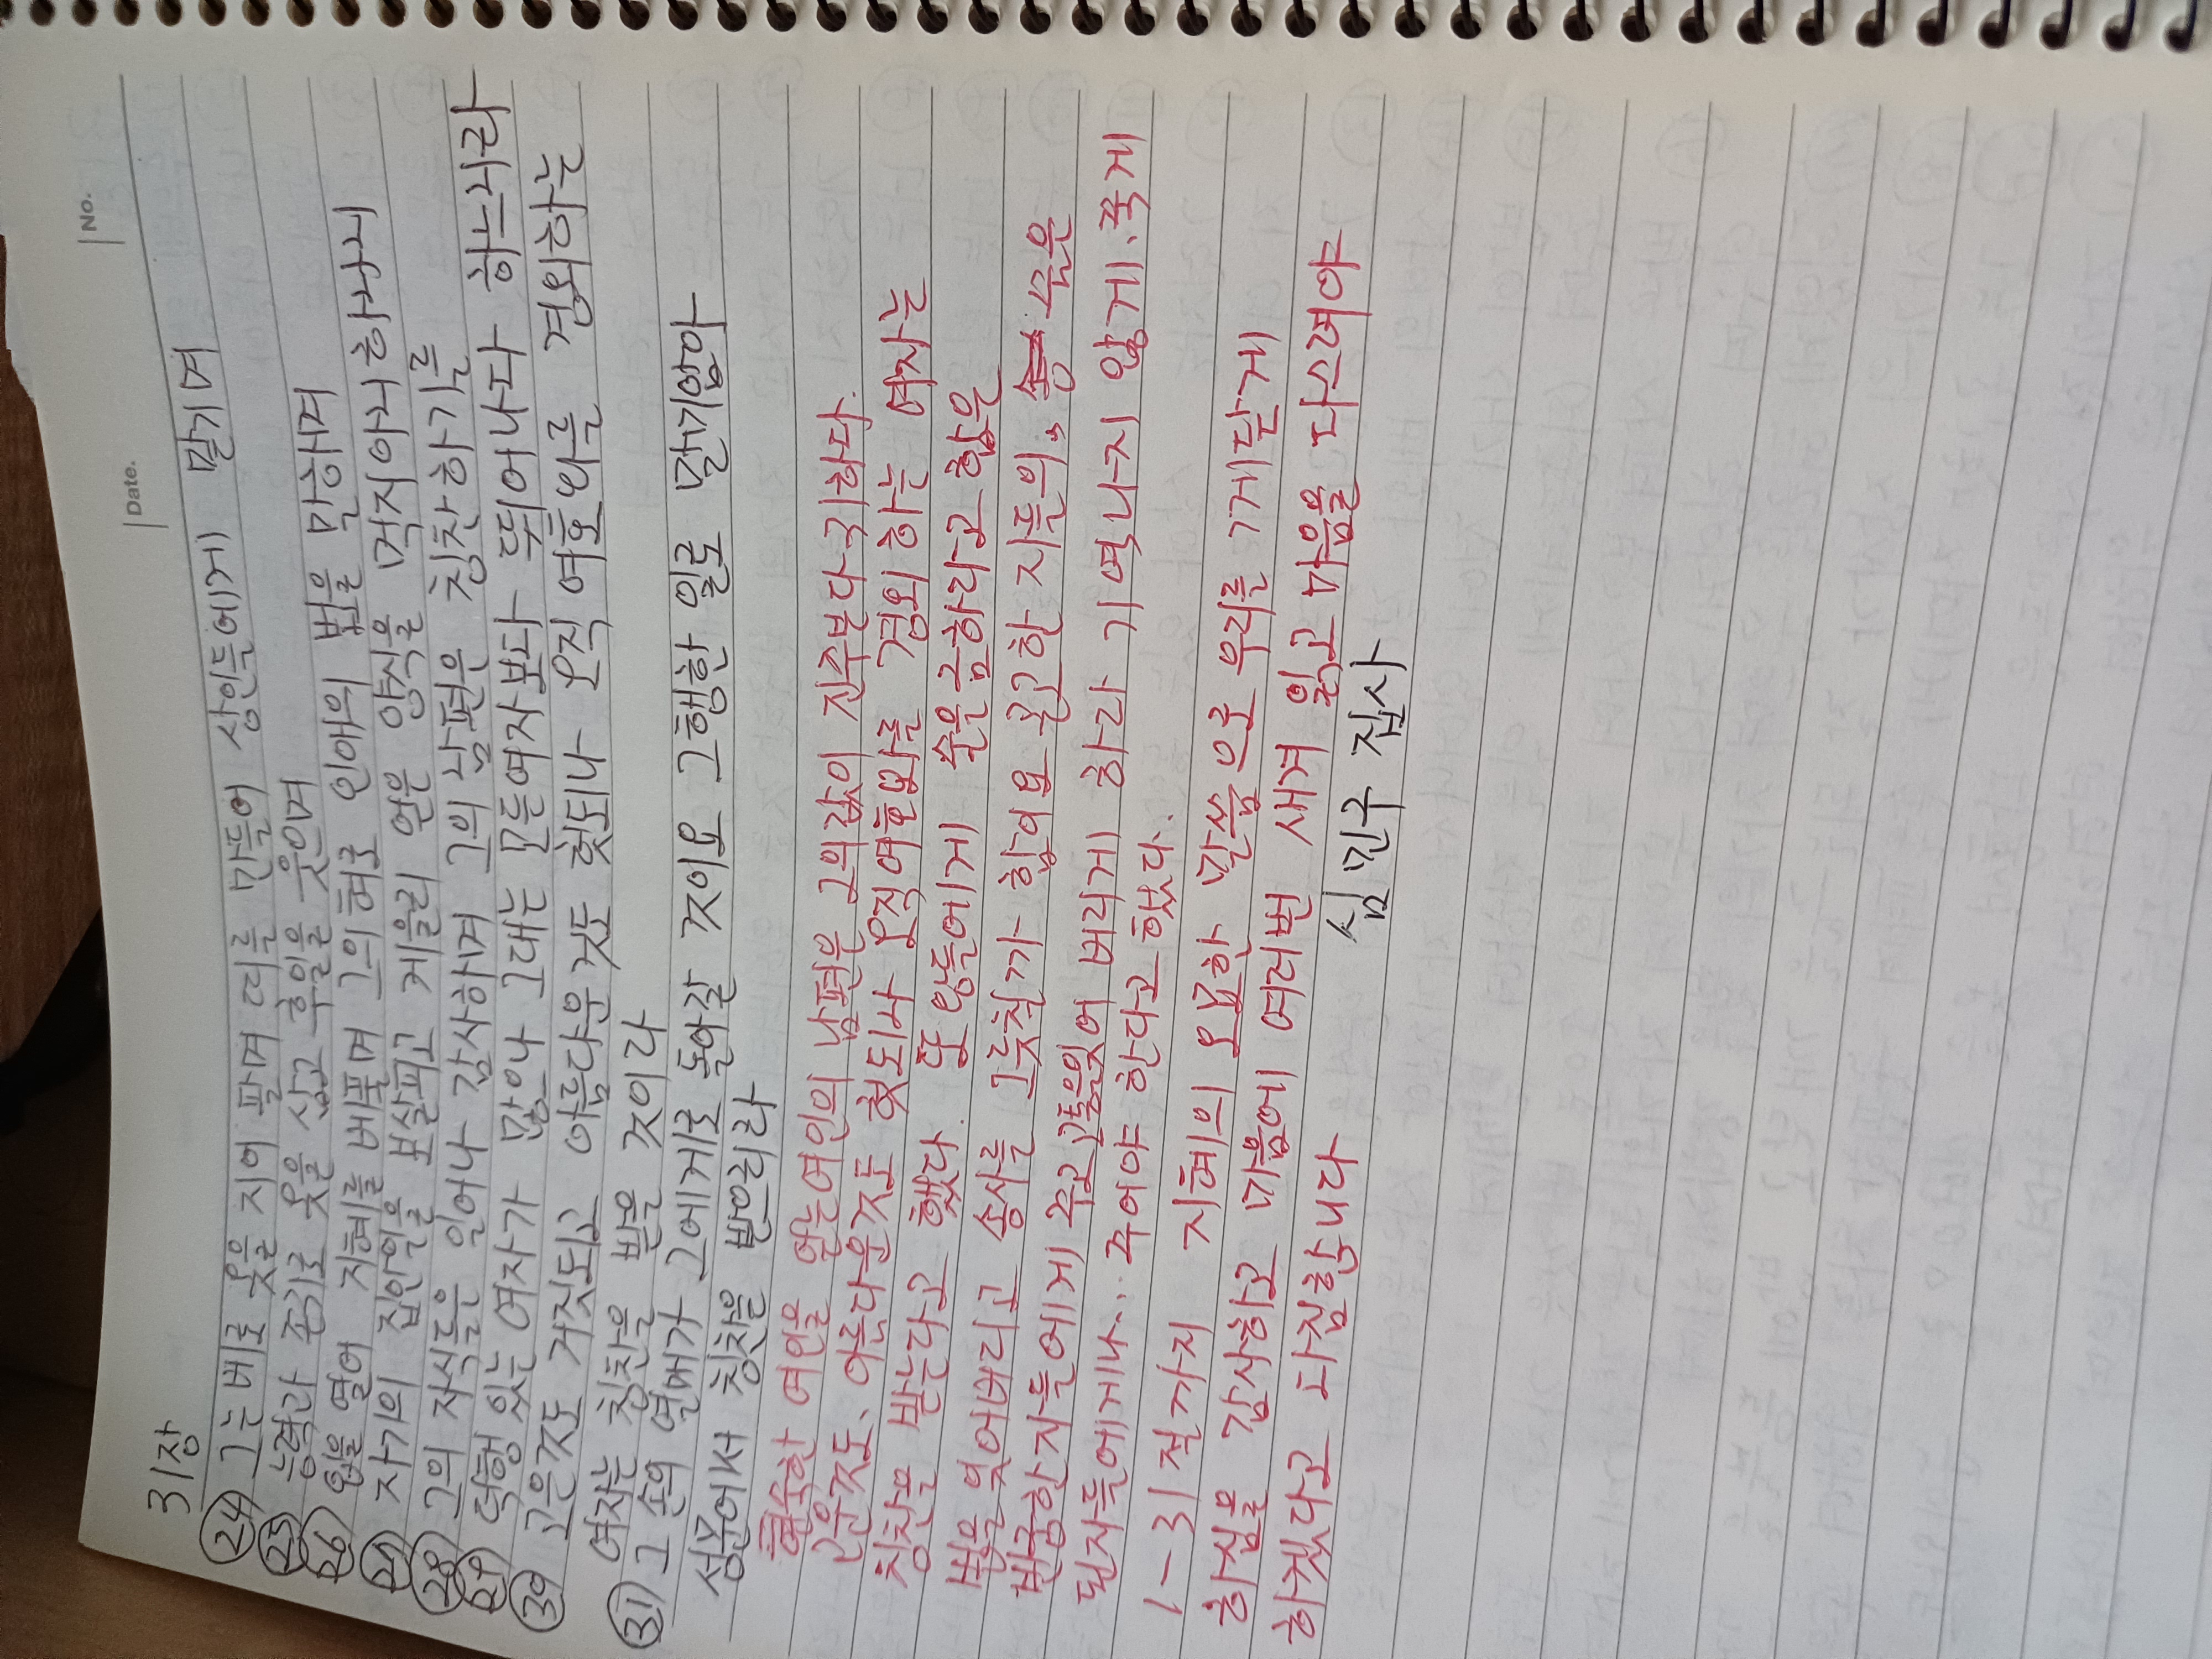 No.
Date.
31장
24 그는 베로 옷을 지어 팔며 띠를 만들어 상인들에게 맡기며
25 능력과 존귀로 옷을 삼고 후일을 웃으며
26 입을 열어 지혜를 베풀며 그의 혀로 인애의 법을 말하며
27 자기의 집안일을 보살피고 게을리 얻은 양식을 먹지아니하나니
28 그의 자식들은 일어나 감사하며 그의 남편은 칭찬하기를
29 덕행 있는 여자가 많으나 그대는 모든여자보다 뛰어나다 하느니라
30 고운것도 거짓되고 아름다운 것도 헛되나 오직 여호와를 경외하는
여자는 칭찬을 받을 것이라
31 그 손의 열매가 그에게로 돌아갈 것이요 그행한 일로 말미암아
성문에서 칭찬을 받으리라
현숙한 여인을 얻는여인의 남편은 그의값이 진주보다귀하다.
고운것도, 아름다운것도 헛되나 오직여호와를 경외하는 여자는
칭찬을 받는다고 했다. 또 왕들에게 술을금하라고 함은
법을 잊어버리고 송사를 그릇칠까 함이요 곤고한 자들의, 술은
빈궁한자들에게 주고 고통을잊어 버리게 하라 기억나지 않게. 죽게
된자들에게나... 주어야 한다고 했다..
1-31절까지 지혜의 요긴한 말씀으로 우리를 ㄱ게닫게
하심을 감사하고 마음에 여러번 새겨 읽고 마음을 다스려야
하겠다고 다짐합니다
심민구 집사